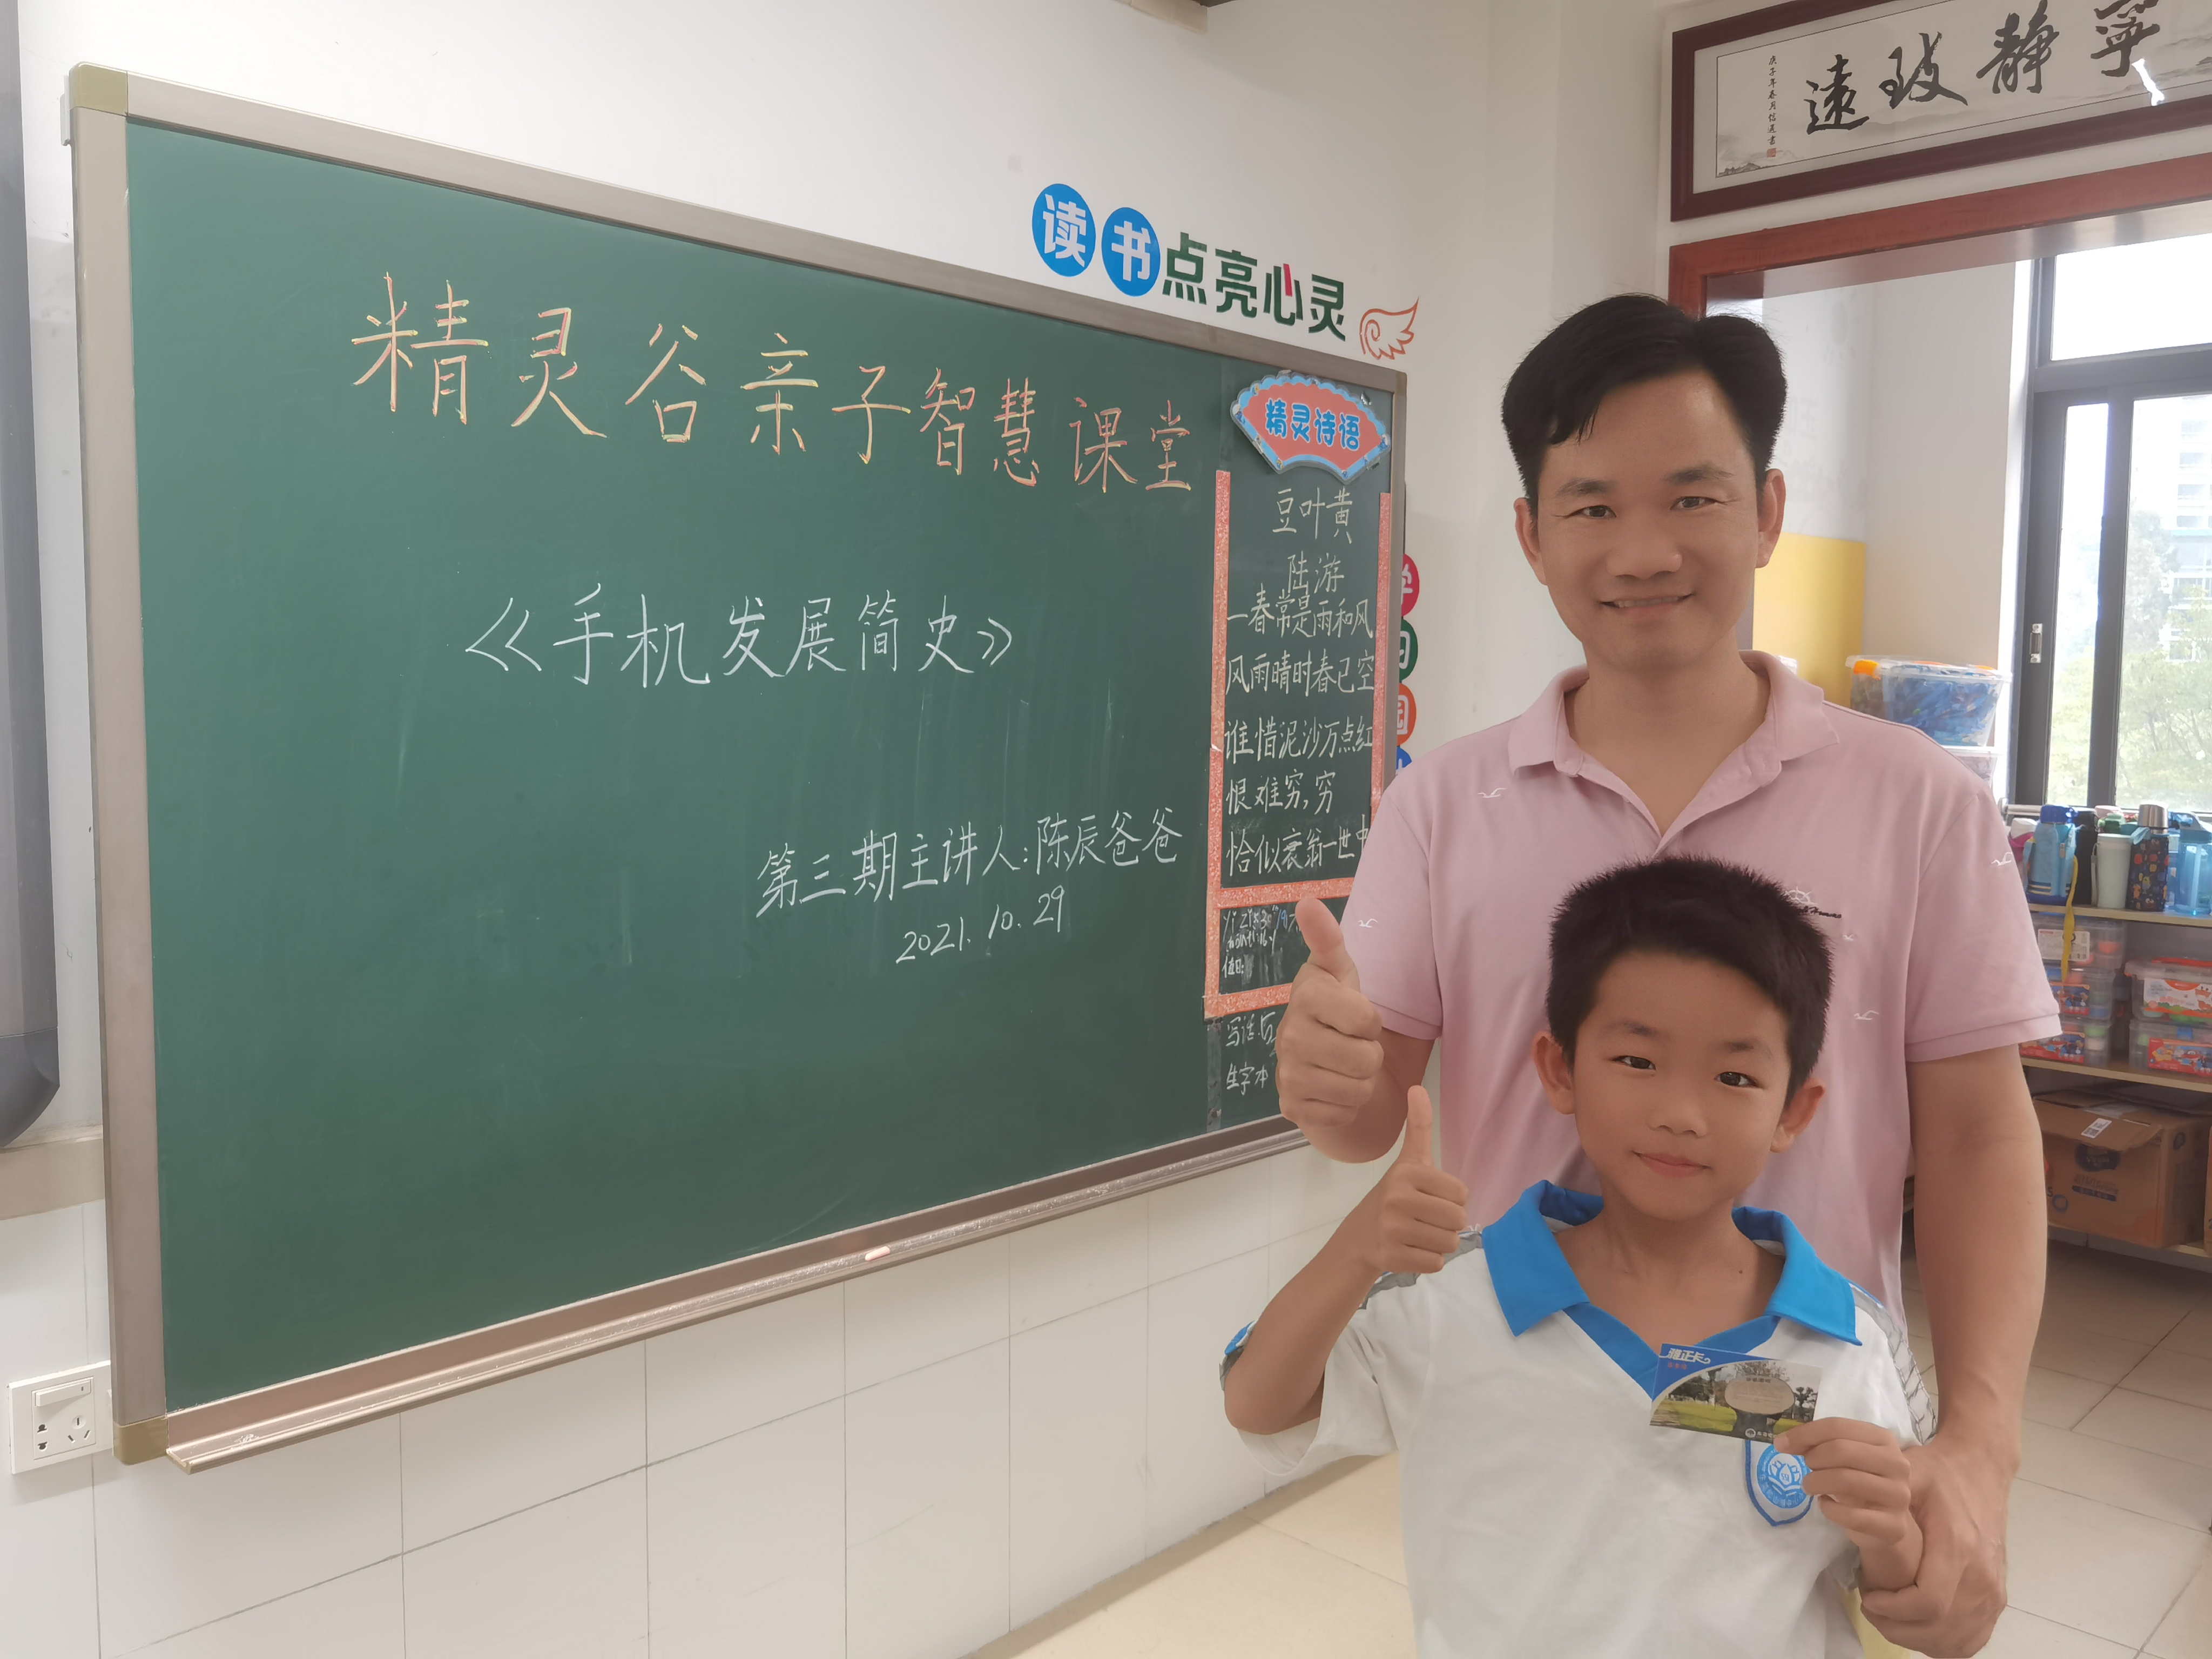 寧靜致遠
庚子年春月信道書
读书点亮心灵
精灵谷亲子智慧课堂
《手机发展简史》
第三期主讲人:陈辰爸爸
2021.10.29
精灵诗语
豆叶黄
陆游
一春常是雨和风
风雨晴时春已空
谁惜泥沙万点红
恨难穷,穷
恰似衰翁一世中
值日:
写话.
生字本
学
习
园
雅正卡